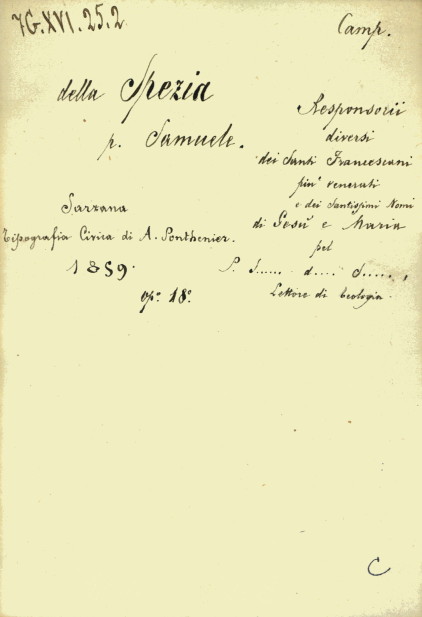 7G.XVI.25.2
Camp.
della Spezia
p. Samuele.
Sarzana
Tipografia Civica di A. Ponthenier.
1859.
op.º 18º
Responsorii
diversi
dei Santi Francescani
piu' venerati
e dei Santissimi Nomi
di Gesù e Maria
pel
P. S...... d.... S.....,
Lettore di teologia.
C